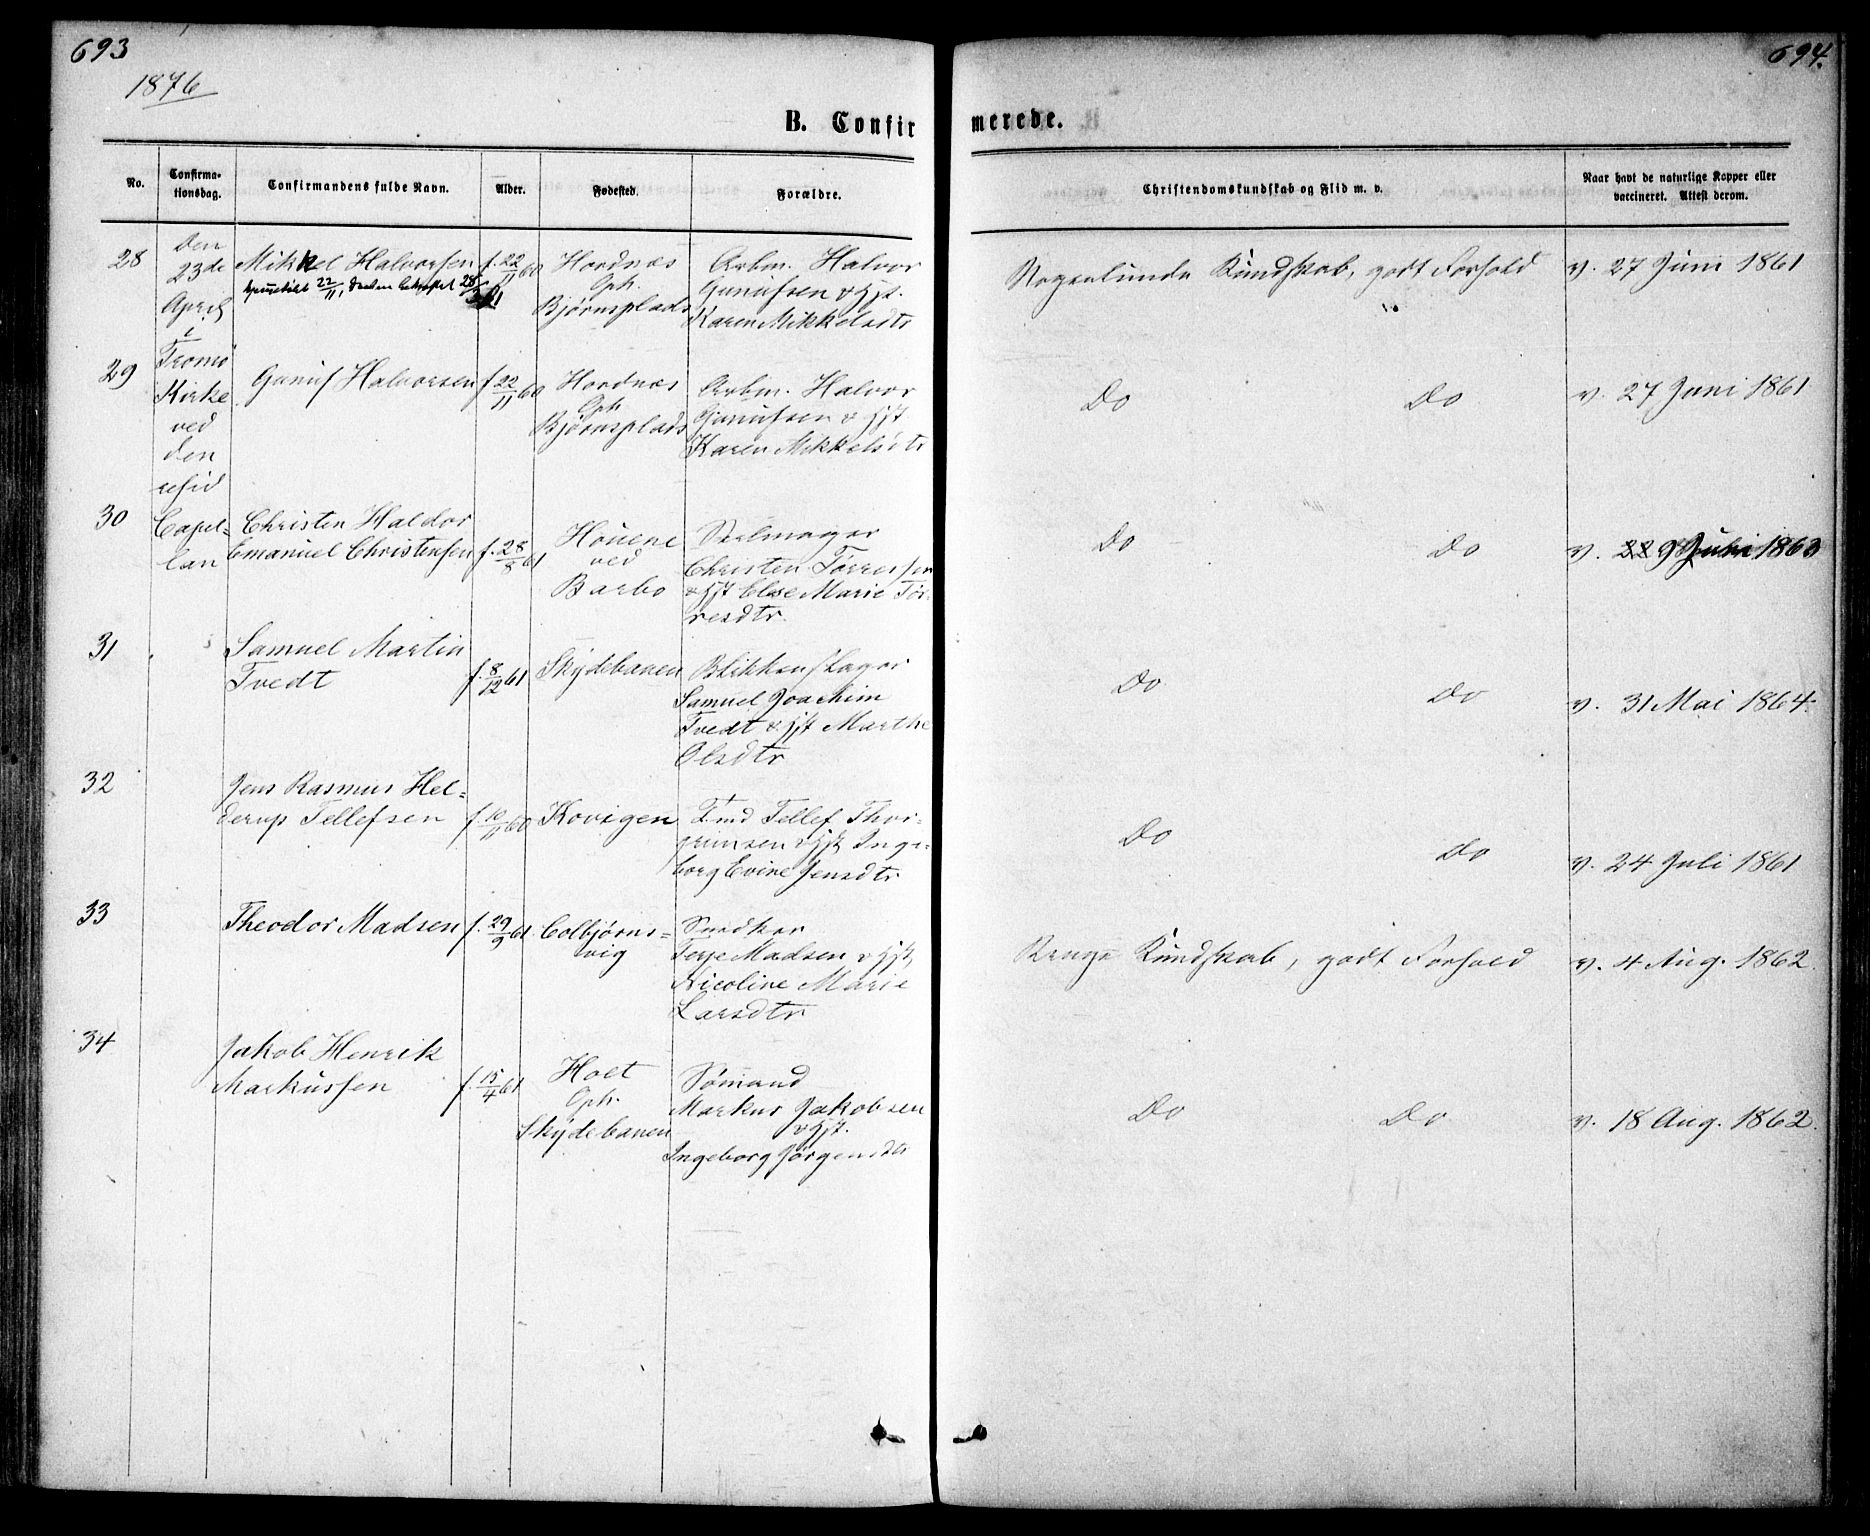 693
1876
694.
B. Confirmerede.
No.
Confirma-
tionsdag.
Confirmandens fulde Navn.
Alder.
Fødested.
Forældre.
Christendomskundskab og Flid m. v.
Naar havt de naturlige Kopper eller
vaccineret. Attest derom.
Den
23de
April
i
Tromø
Kirke
ved
den
resid
Capel-
lan
28
Mikkel Halvorsen
22/11 28/3 61
f. 22/11 60
Hordnæs
Oph.
Bjørnsplads
Arbm. Halvor
Gunufsen & Hst.
Karen Mikkelsdtr
Nogenlunde Kundskab, godt Forhold
v. 27 Juni 1861
29
Gunuf Halvorsen
f. 22/11 60
Hordnæs
Oph
Bjørnsplads
Arbm. Halvor
Gunufsen & Hst
Karen Mikkelsdtr
Do Do
v. 27 Juni 1861
30
Christen Haldor
Emanuel Christensen
f. 28/8 61
Houene
ved
Barbo
Seilmager
Christen Tørresen
& Hst Else Marie Tør-
resdtr.
Do Do
v. 9 Juli 1863
31
Samuel Martin
Tvedt
f. 8/12 61
Skydebanen
Blikkenslager
Samuel Joachim
Tvedt & Hst Marthe
Olsdtr
Do Do
v. 31 Mai 1864.
32
Jens Rasmus Hel-
derup Tellefsen
f. 10/11 60
Kovigen
Tmd Tellef Thor-
grimsen & Hst Inge-
borg Evine Jensdtr
Do Do
v. 24 Juli 1861
33
Theodor Madsen
f. 29/9 61
Colbjørns-
vig
Snedker
Terje Madsen & Hst
Nicoline Marie
Larsdtr
Kundskab, godt Forhold
v. 4 Aug. 1862.
34
Jakob Henrik
Markussen
f. 15/4 61
Holt
Oph.
Skydebanen
Sømand
Markus Jakobsen
& Hst.
Ingeborg Jørgensdtr
Do Do
v. 18 Aug. 1862.